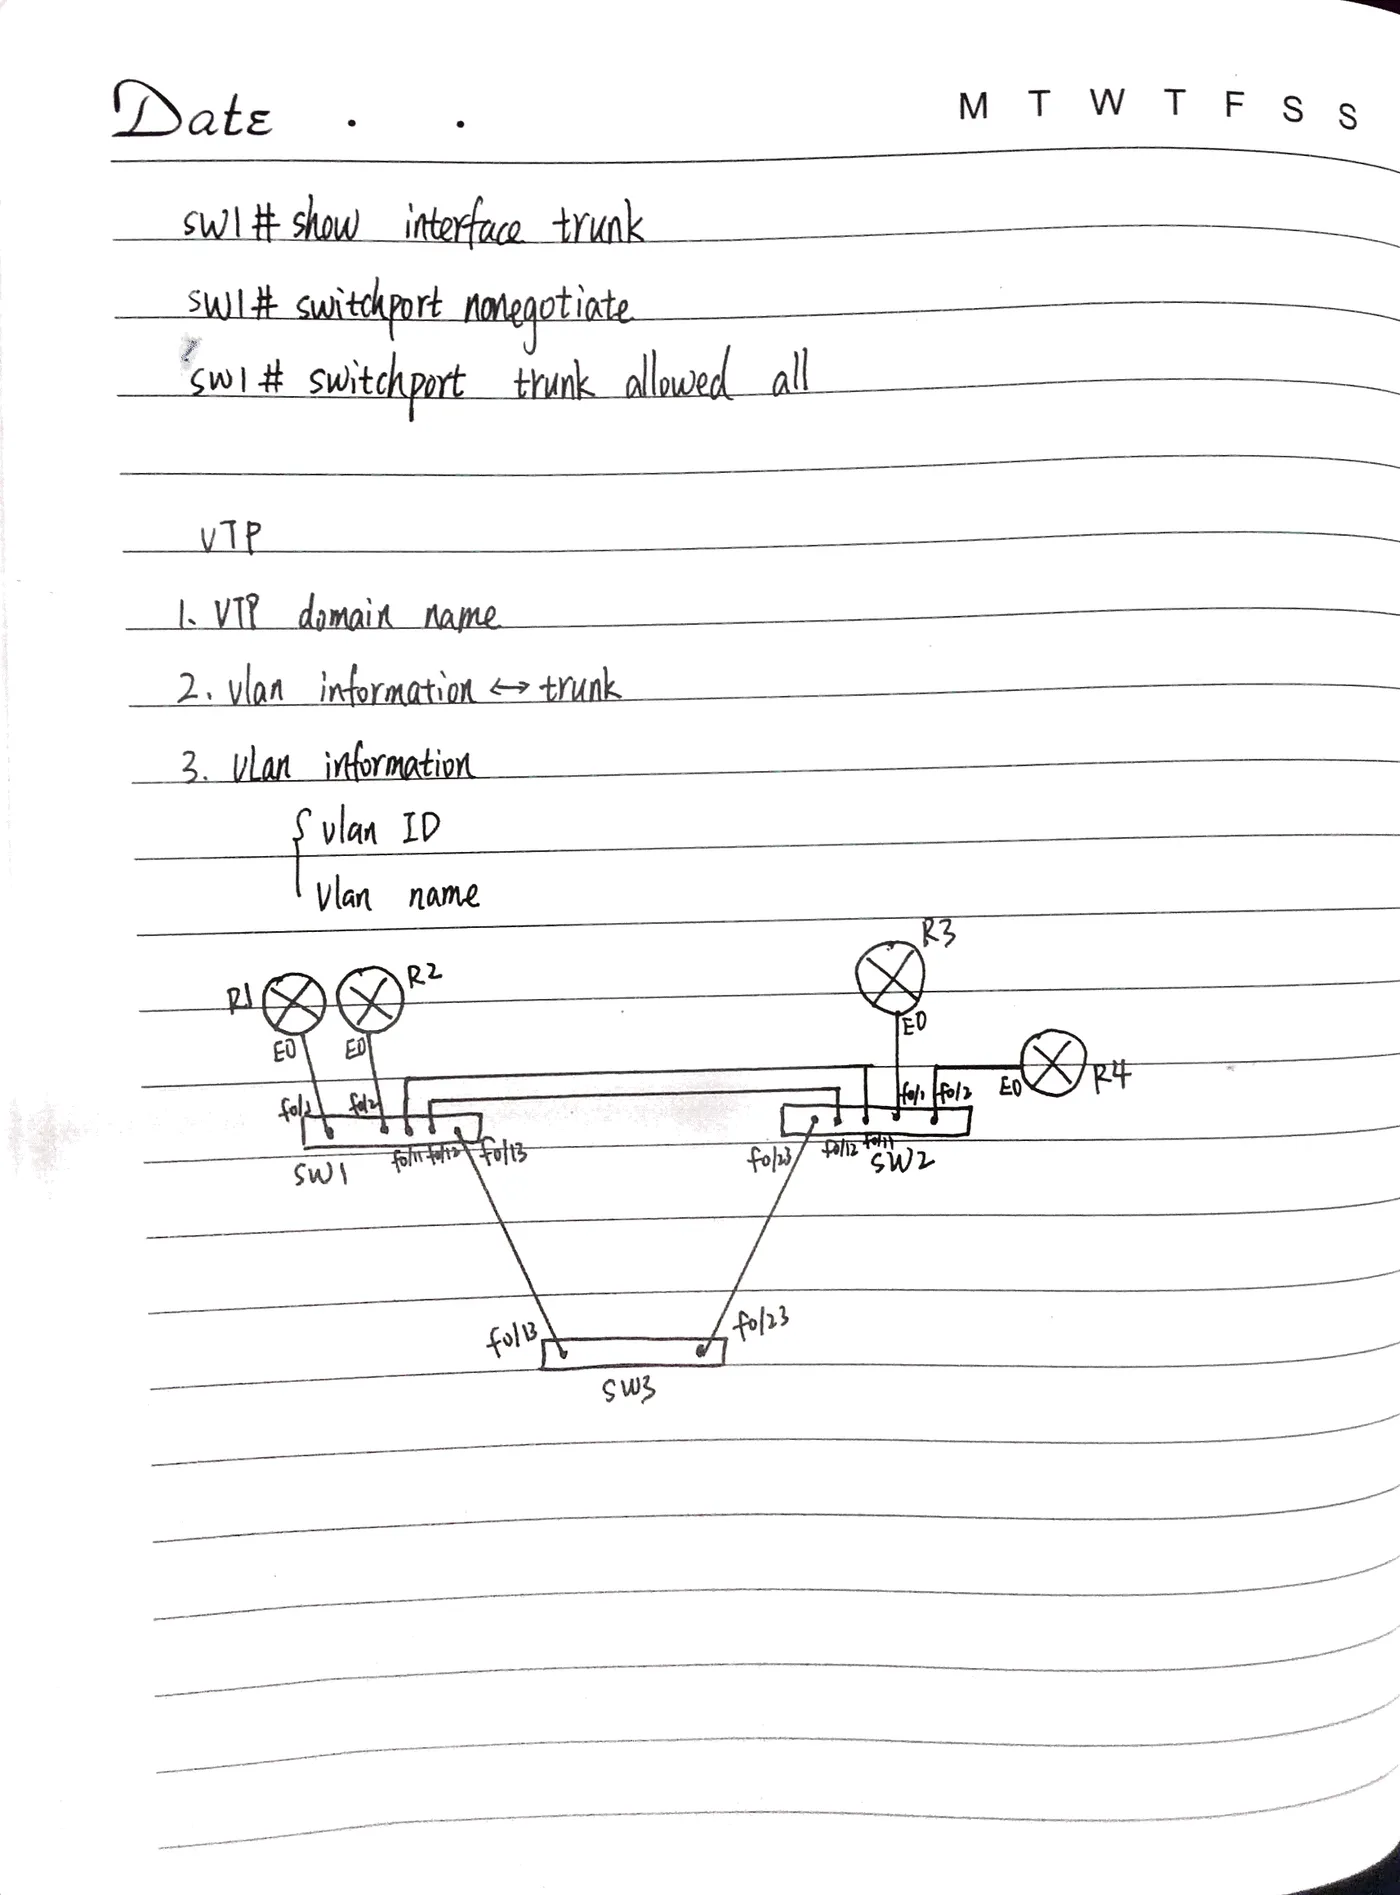 Date . .
M T W T F S S
SW1# show interface trunk
SW1# switchport nonegotiate
SW1# switchport trunk allowed all
VTP
1. VTP domain name
2. vlan information ↔ trunk
3. vlan information
{ vlan ID
vlan name
R3
R1 R2
E0 E0 E0
E0 R4
f0/1 f0/2 f0/1 f0/2
f0/11 f0/12 f0/13 f0/23 f0/12 f0/11
SW1 SW2
f0/13 f0/23
SW3